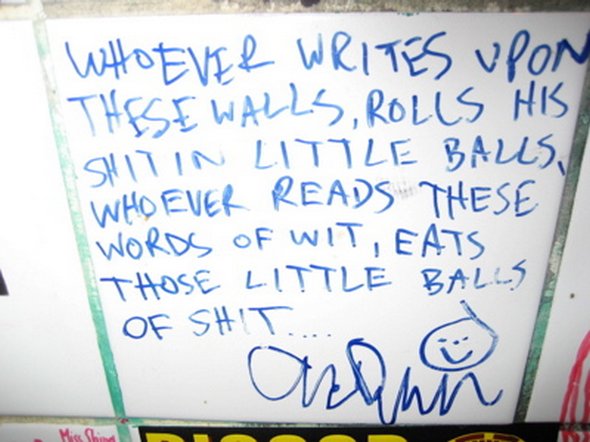 WHOEVER WRITES UPON
THESE WALLS, ROLLS HIS
SHIT IN LITTLE BALLS,
WHOEVER READS THESE
WORDS OF WIT, EATS
THOSE LITTLE BALLS
OF SHIT....
Miss Shing